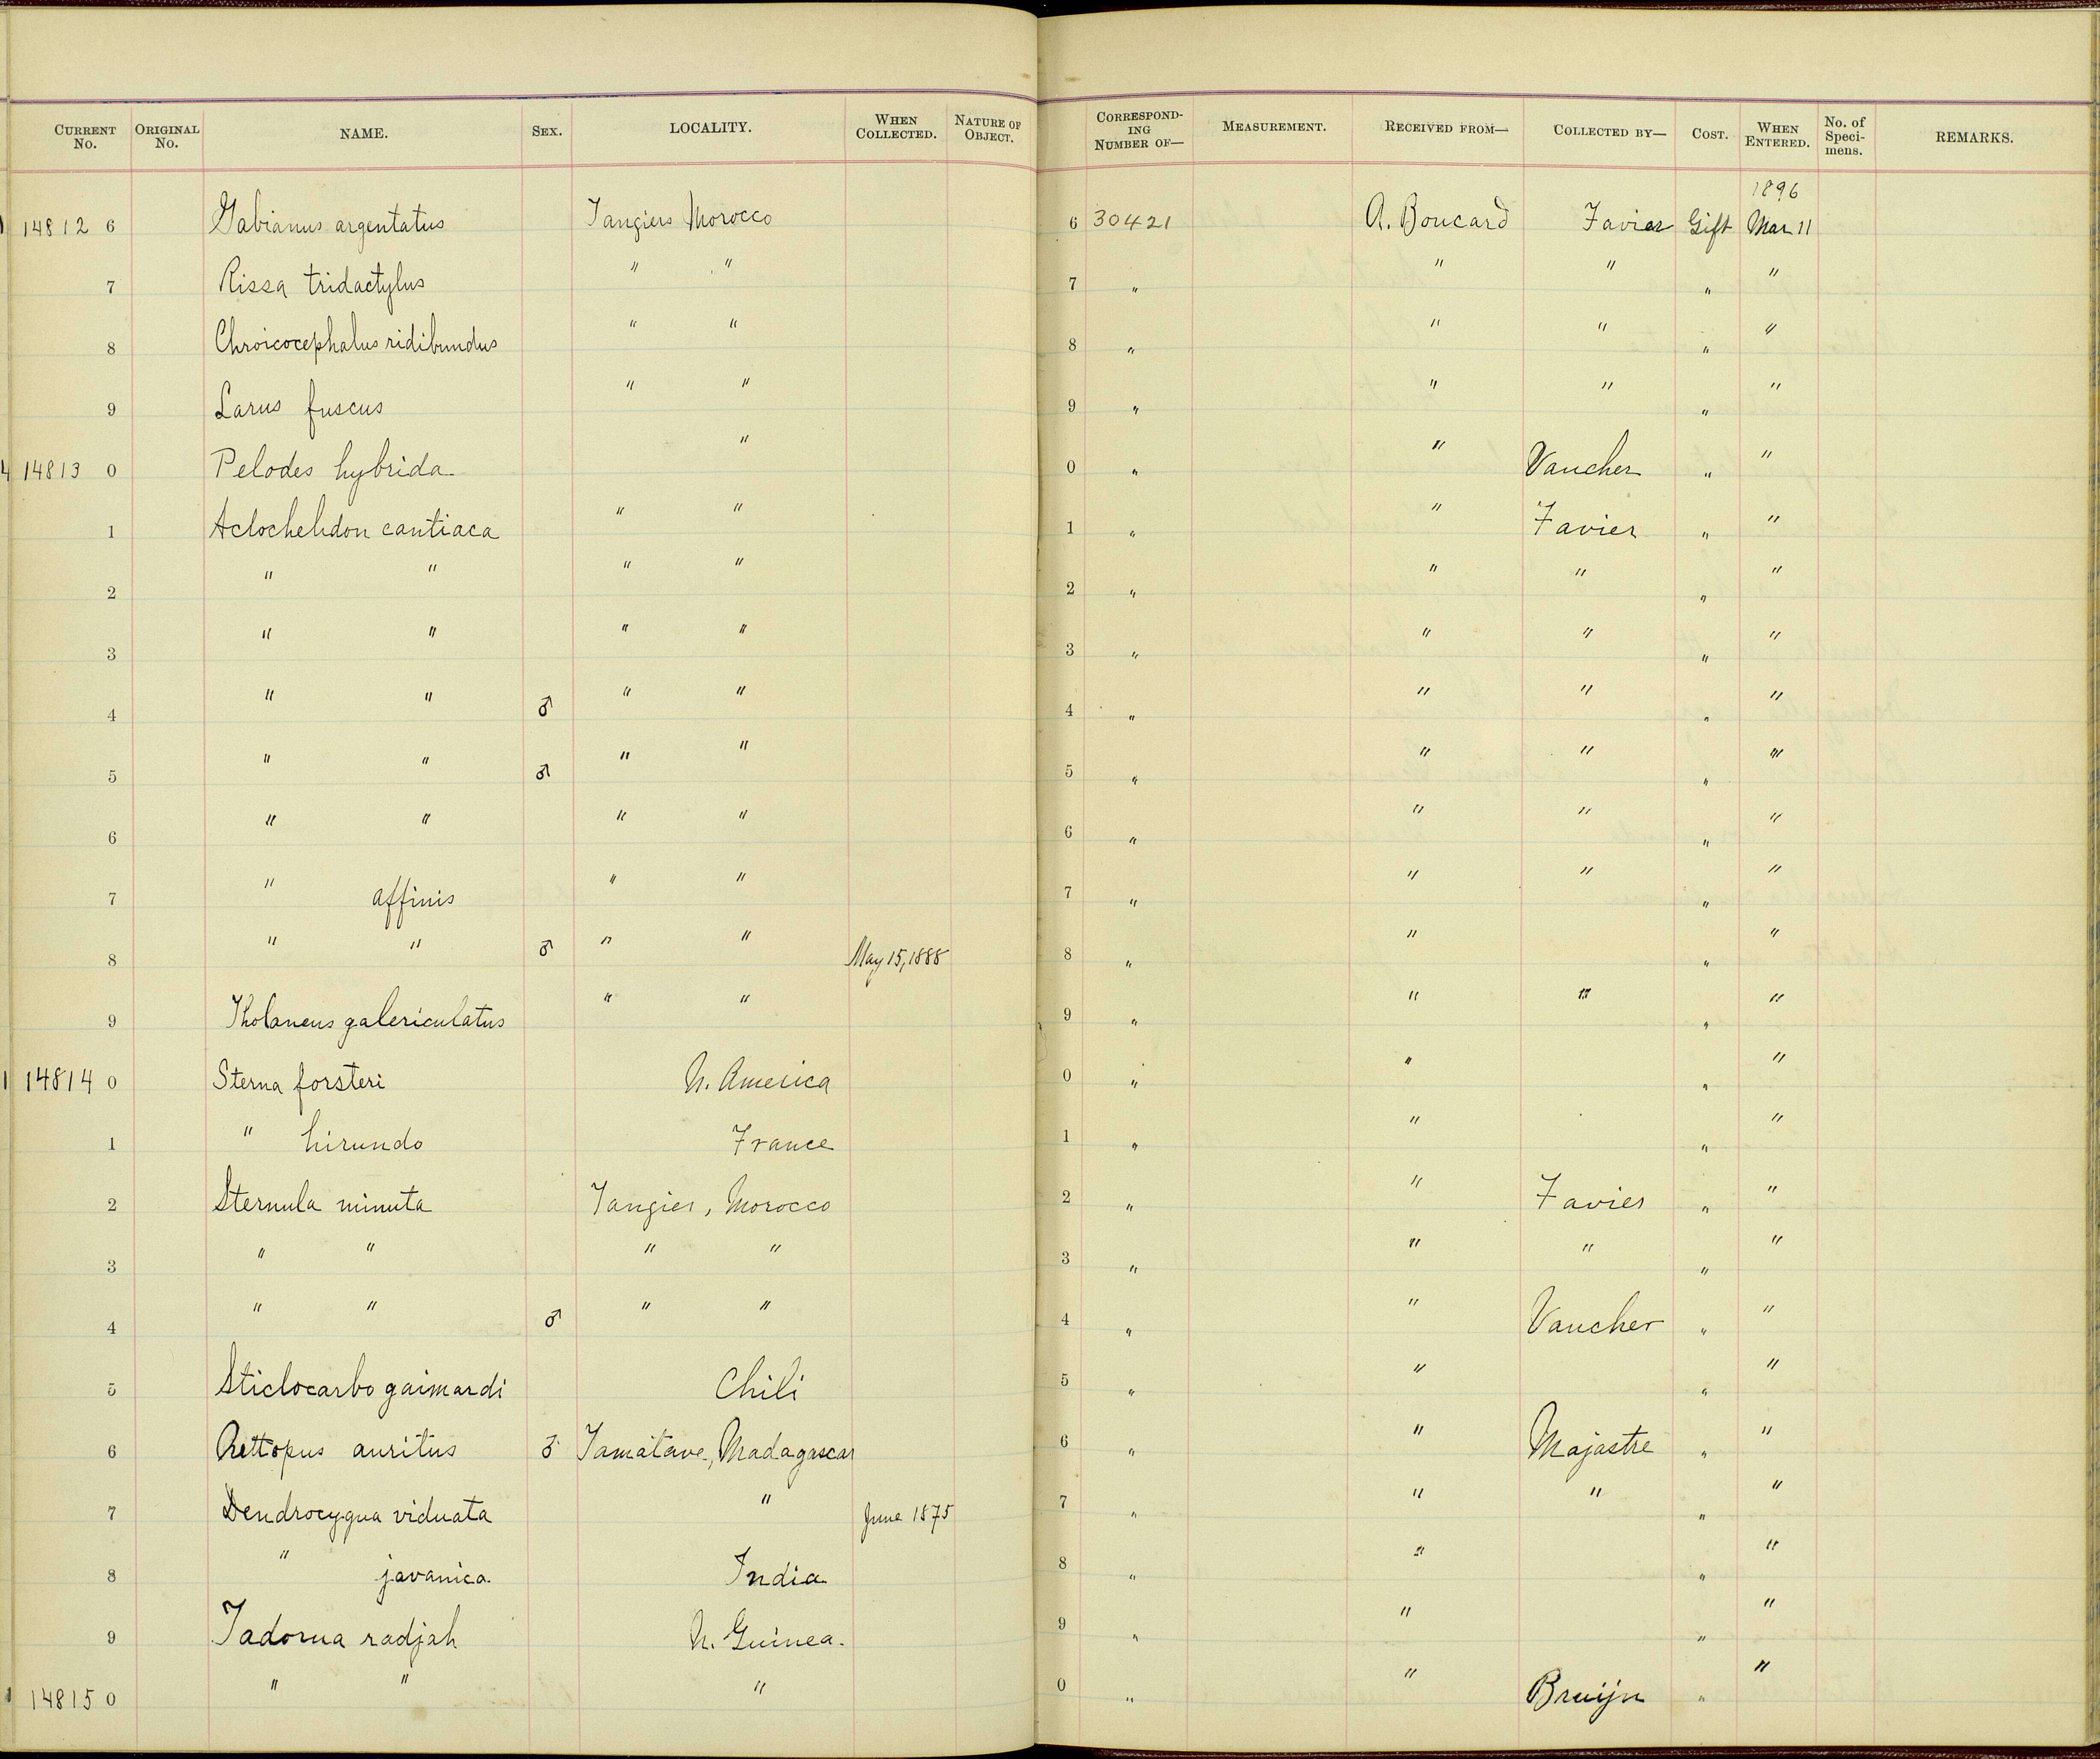 CURRENT No. ORIGINAL No. NAME. SEX. LOCALITY. WHEN COLLECTED. NATURE OF OBJECT. CORRESPONDING NUMBER OF— MEASUREMENT. RECEIVED FROM— COLLECTED BY— COST. WHEN ENTERED. No. of Specimens. REMARKS.
1896
14812 6 Gabianus argentatus Tangiers Morocco 6 30421 A. Boucard Favier Gift Mar 11
7 Rissa tridactylus " " 7 " " " " "
8 Chroicocephalus ridibundus " " 8 " " " " "
9 Larus fuscus " " 9 " " " " "
14813 0 Pelodes hybrida " 0 " " Vaucher " "
1 Actochelidon cantiaca " " 1 " " Favier " "
2 " " " " 2 " " " " "
3 " " " " 3 " " " " "
4 " " ♂ " " 4 " " " " "
5 " " ♂ " " 5 " " " " "
6 " " " " 6 " " " " "
7 " affinis " " 7 " " " " "
8 " " ♂ " " May 15, 1888 8 " " " "
9 Tholaneus galericulatus " " 9 " " " " "
14814 0 Sterna forsteri N. America 0 " " " "
1 " hirundo France 1 " " " "
2 Sternula minuta Tangier, Morocco 2 " " Favier " "
3 " " " " 3 " " " " "
4 " " ♂ " " 4 " " Vaucher " "
5 Stictocarbo gaimardi Chili 5 " " " "
6 Rettopus auritus ♂ Tamatave, Madagascar 6 " " Majastre " "
7 Dendrocygna viduata " June 1875 7 " " " " "
8 " javanica. India 8 " " " "
9 Tadorna radjah N. Guinea. 9 " " " "
14815 0 " " " 0 " " Bruijn " "